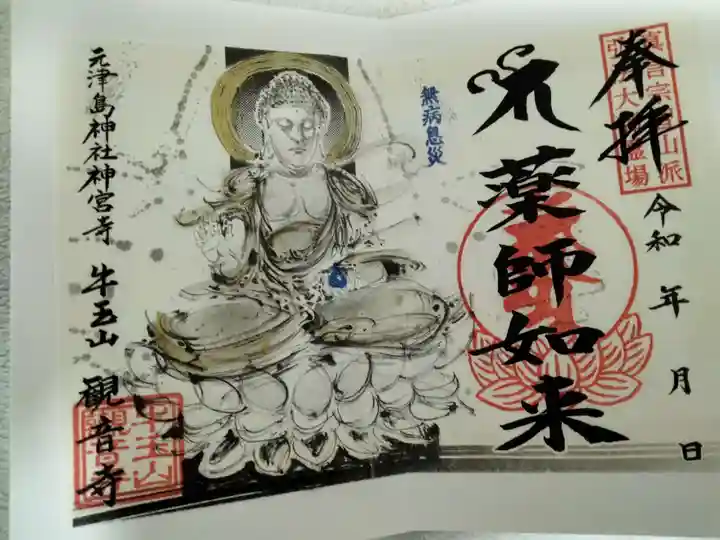 奉拝
真言宗
山派
弘
大
霊場
令和 年 月 日
薬師如来
無病息災
元津島神社神宮寺 牛玉山 観音寺
牛玉山
観音寺